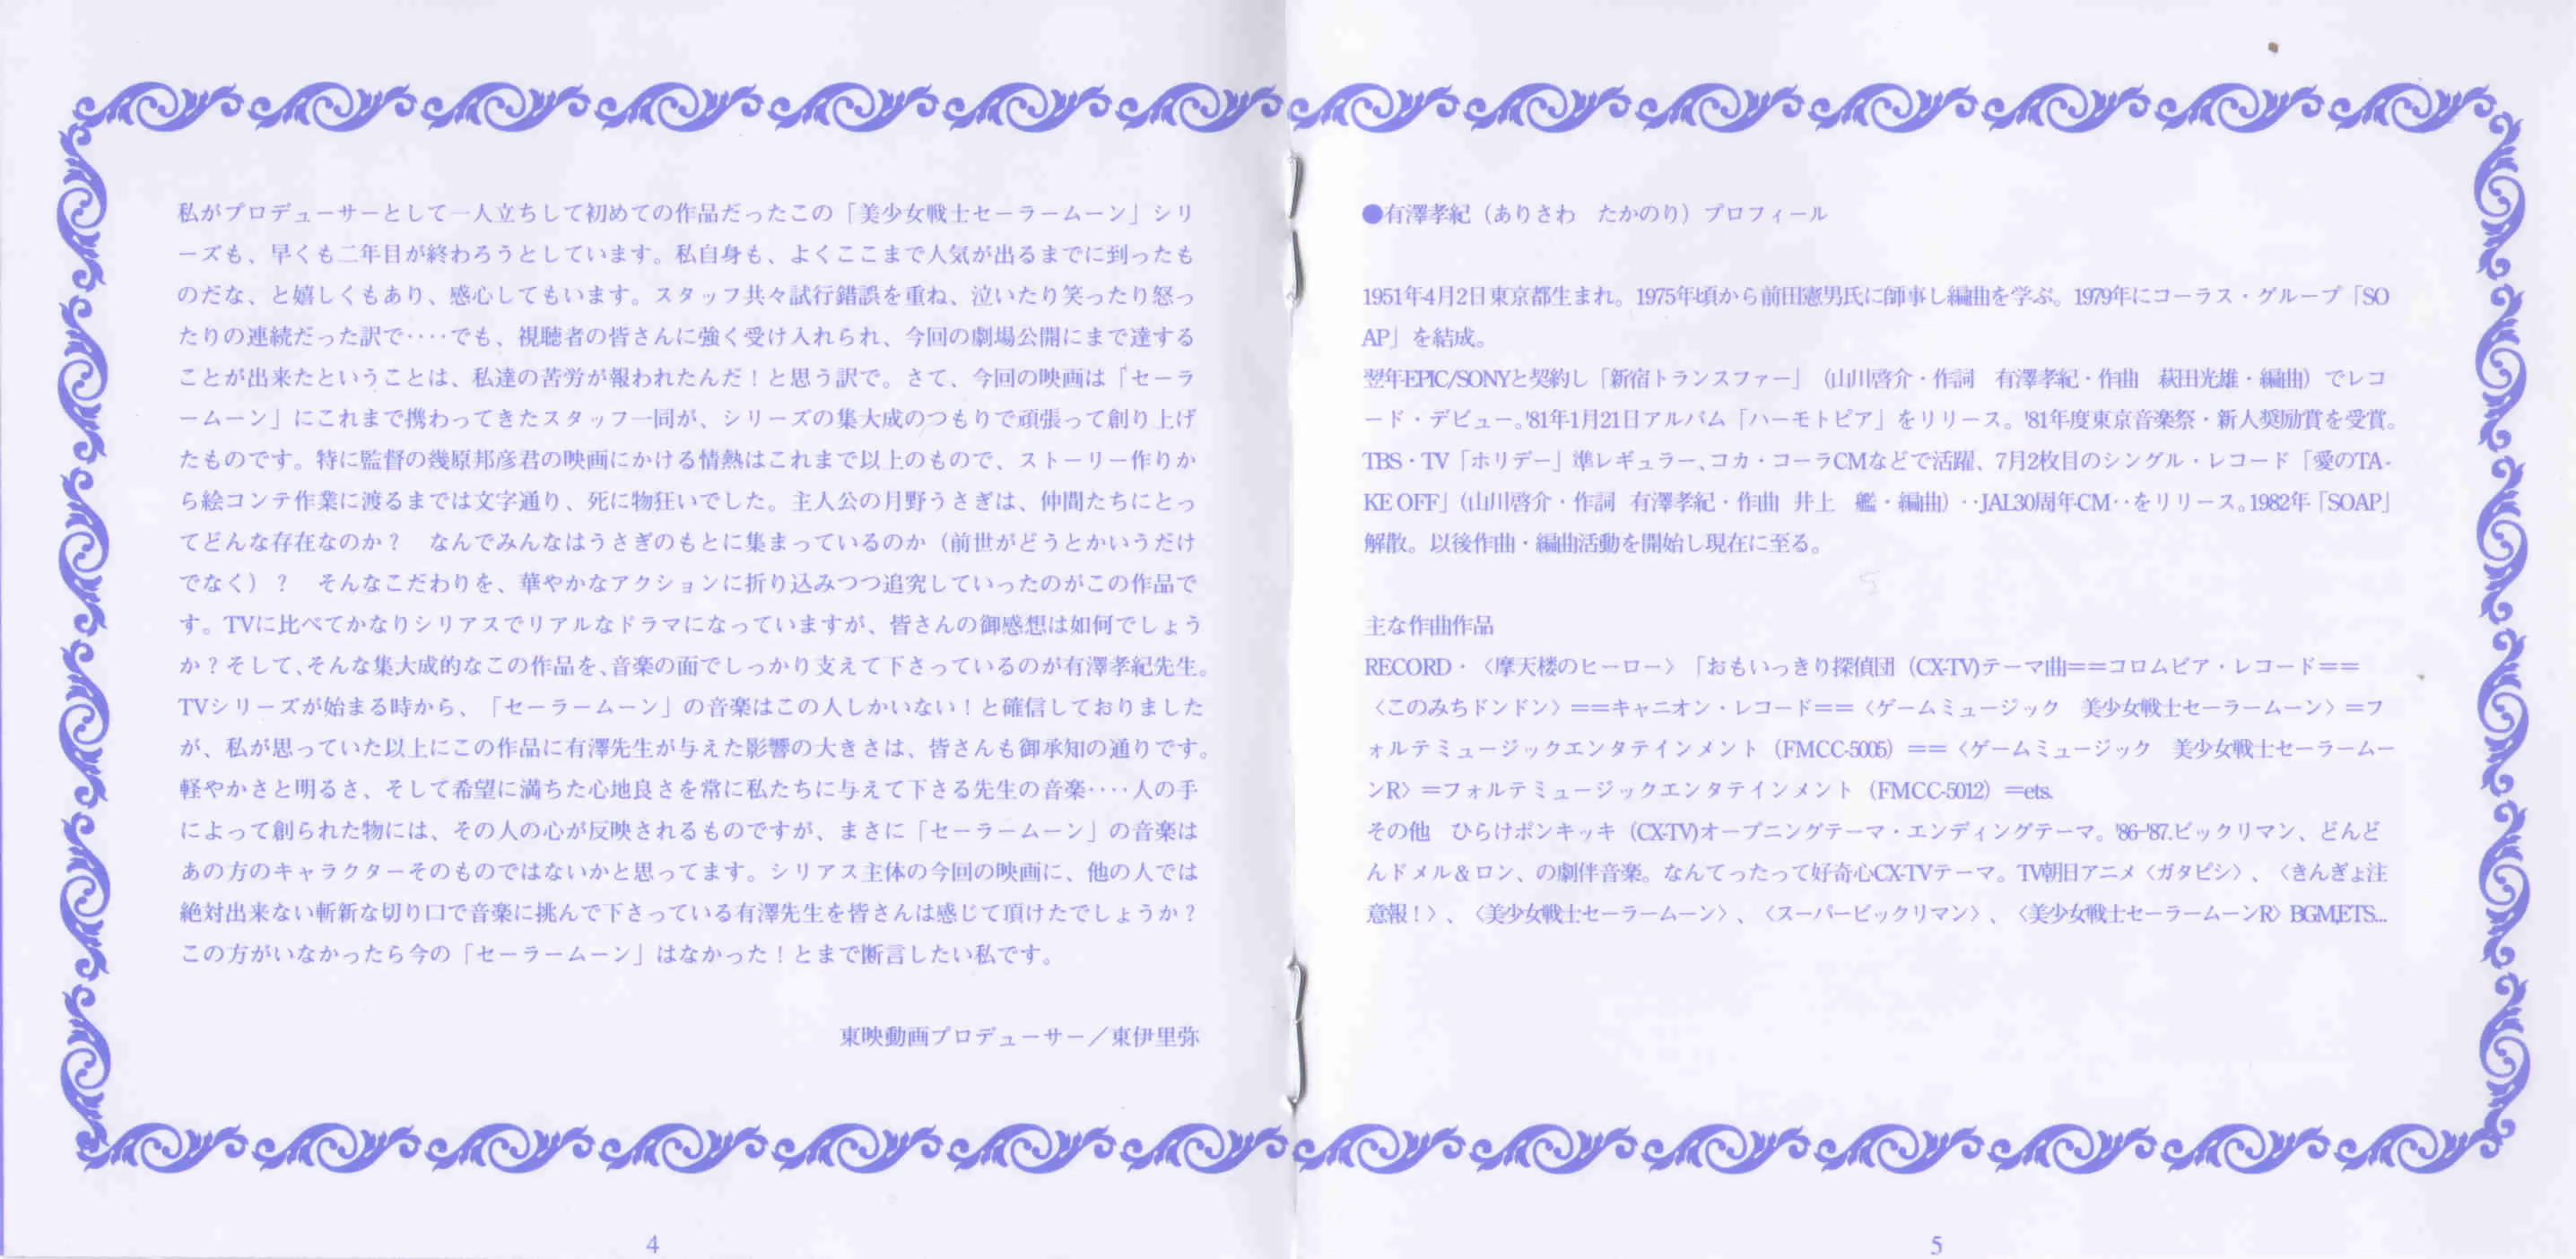 私がプロデューサーとして一人立ちして初めての作品だったこの「美少女戦士セーラームーン」シリ
ーズも、早くも二年目が終わろうとしています。私自身も、よくここまで人気が出るまでに到ったも
のだな、と嬉しくもあり、感心してもいます。スタッフ共々試行錯誤を重ね、泣いたり笑ったり怒っ
たりの連続だった訳で‥‥でも、視聴者の皆さんに強く受け入れられ、今回の劇場公開にまで達する
ことが出来たということは、私達の苦労が報われたんだ！と思う訳で。さて、今回の映画は「セーラ
ームーン」にこれまで携わってきたスタッフ一同が、シリーズの集大成のつもりで頑張って創り上げ
たものです。特に監督の幾原邦彦君の映画にかける情熱はこれまで以上のもので、ストーリー作りか
ら絵コンテ作業に渡るまでは文字通り、死に物狂いでした。主人公の月野うさぎは、仲間たちにとっ
てどんな存在なのか？　なんでみんなはうさぎのもとに集まっているのか（前世がどうとかいうだけ
でなく）？　そんなこだわりを、華やかなアクションに折り込みつつ追究していったのがこの作品で
す。TVに比べてかなりシリアスでリアルなドラマになっていますが、皆さんの御感想は如何でしょう
か？そして、そんな集大成的なこの作品を、音楽の面でしっかり支えて下さっているのが有澤孝紀先生。
TVシリーズが始まる時から、「セーラームーン」の音楽はこの人しかいない！と確信しておりました
が、私が思っていた以上にこの作品に有澤先生が与えた影響の大きさは、皆さんも御承知の通りです。
軽やかさと明るさ、そして希望に満ちた心地良さを常に私たちに与えて下さる先生の音楽‥‥人の手
によって創られた物には、その人の心が反映されるものですが、まさに「セーラームーン」の音楽は
あの方のキャラクターそのものではないかと思ってます。シリアス主体の今回の映画に、他の人では
絶対出来ない斬新な切り口で音楽に挑んで下さっている有澤先生を皆さんは感じて頂けたでしょうか？
この方がいなかったら今の「セーラームーン」はなかった！とまで断言したい私です。
東映動画プロデューサー／東伊里弥
4
●有澤孝紀（ありさわ　たかのり）プロフィール
1951年4月2日東京都生まれ。1975年頃から前田憲男氏に師事し編曲を学ぶ。1979年にコーラス・グループ「SO
AP」を結成。
翌年EPIC/SONYと契約し「新宿トランスファー」（山川啓介・作詞　有澤孝紀・作曲　萩田光雄・編曲）でレコ
ード・デビュー。'81年1月21日アルバム「ハーモトピア」をリリース。'81年度東京音楽祭・新人奨励賞を受賞。
TBS・TV「ホリデー」準レギュラー、コカ・コーラCMなどで活躍、7月2枚目のシングル・レコード「愛のTA-
KE OFF」（山川啓介・作詞　有澤孝紀・作曲　井上　艦・編曲）‥JAL30周年CM‥をリリース。1982年「SOAP」
解散。以後作曲・編曲活動を開始し現在に至る。
主な作曲作品
RECORD・〈摩天楼のヒーロー〉「おもいっきり探偵団（CX-TV)テーマ曲＝＝コロムビア・レコード＝＝
〈このみちドンドン〉＝＝キャニオン・レコード＝＝〈ゲームミュージック　美少女戦士セーラームーン〉＝フ
ォルテミュージックエンタテインメント（FMCC-5005）＝＝〈ゲームミュージック　美少女戦士セーラームー
ンR〉＝フォルテミュージックエンタテインメント（FMCC-5012）＝ets.
その他　ひらけポンキッキ（CX-TV)オープニングテーマ・エンディングテーマ。'86-'87.ビックリマン、どんど
んドメル＆ロン、の劇伴音楽。なんてったって好奇心CX-TVテーマ。TV朝日アニメ〈ガタピシ〉、〈きんぎょ注
意報！〉、〈美少女戦士セーラームーン〉、〈スーパービックリマン〉、〈美少女戦士セーラームーンR〉BGM,ETS...
5